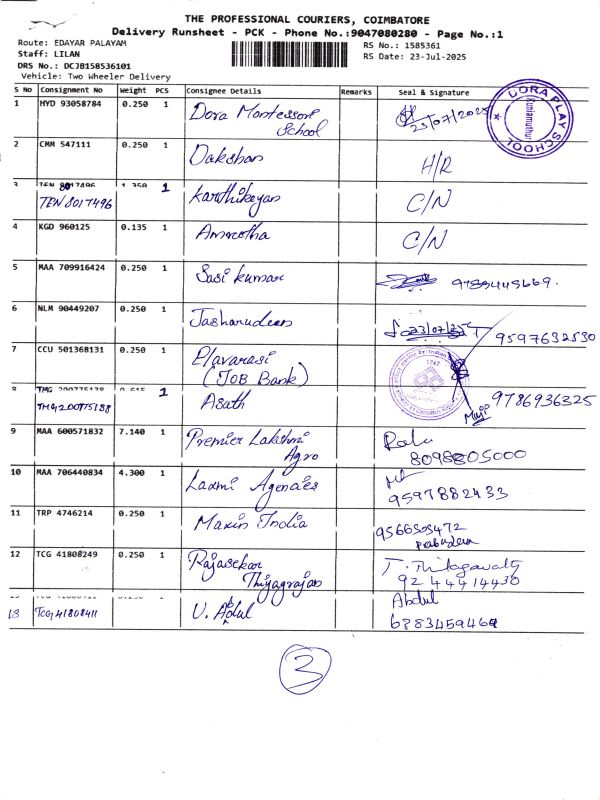 THE PROFESSIONAL COURIERS, COIMBATORE
Delivery Runsheet - PCK - Phone No.:9047080280 - Page No.:1
Route: EDAYAR PALAYAM
RS No.: 1585361
Staff: LILAN
RS Date: 23-Jul-2025
DRS No.: DCJB158536101
Vehicle: Two Wheeler Delivery
S No Consignment No Weight PCS Consignee Details Remarks Seal & Signature
1 HYD 93058784 0.250 1 Dora Montessori School 23/07/2025
DORA PLAY SCHOOL
2 CMM 547111 0.250 1 Dakshan H/R
3 TEN 8017496 1.350 1 Karthikeyan C/N
TEN 8017496
4 KGD 960125 0.135 1 Amirtha C/N
5 MAA 709916424 0.250 1 Sasi kumar
6 NLM 90449207 0.250 1 Jasharudeen 23/07/25 9597632530
7 CCU 501368131 0.250 1 Elavarasi
(JOB Bank)
8 TMG 200775138 0.615 1 Asath 9786936325
TMG200775138
9 MAA 600571832 7.140 1 Premier Lakshmi Agro
8098805000
10 MAA 706440834 4.300 1 Laxmi Agencies
9597882433
11 TRP 4746214 0.250 1 Maxin India
12 TCG 41808249 0.250 1 Rajasekar Thiyagrajan T. Thilagavathy
92 44414430
13 TCG41808411 V. Abdul Abdul
6383459469
3